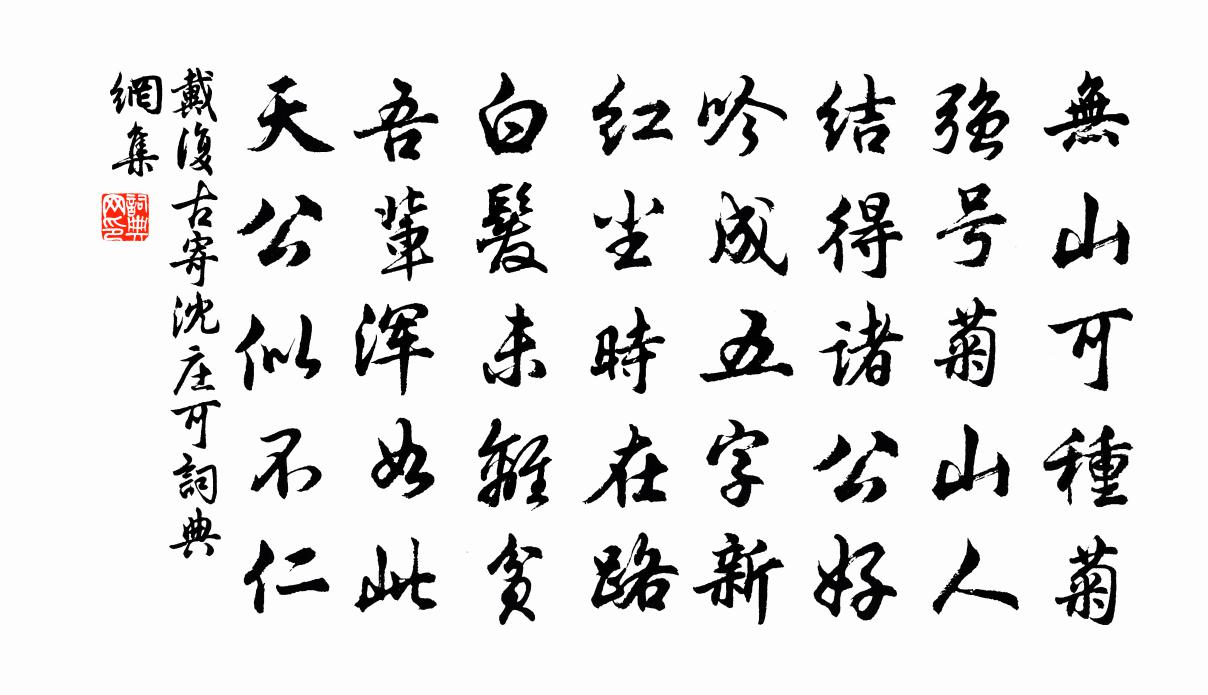 無山可種菊
强号菊山人
结得诸公好
吟成五字新
红尘時在路
白髮未離貧
吾輩浑如此
天公似不仁
戴復古寄沈庄可詞典
網集
詞典网印